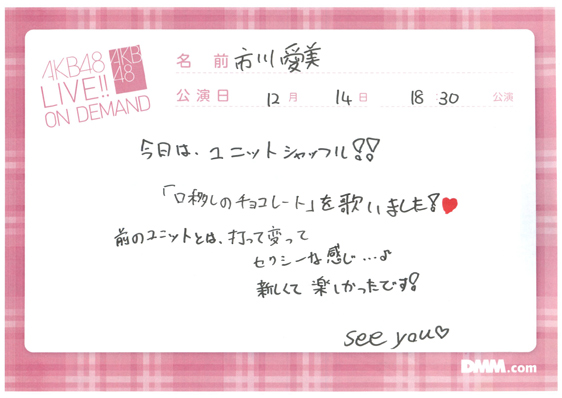 AKB48
LIVE!!
ON DEMAND
AKB
48
名 前 市川愛美
公演日 12 月 14 日 18 : 30 公演
今日は、ユニットシャッフル!!
「口移しのチョコレート」を歌いました!♥
前のユニットとは、打って変って
セクシーな感じ…♪
新しくて楽しかったです!
see you♡
DMM.com